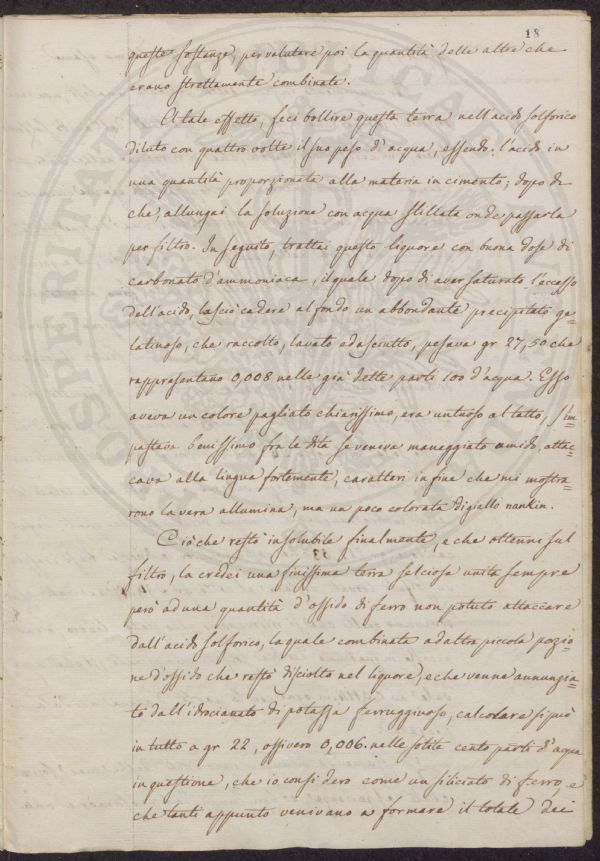 18
queste sostanze, per valutare poi la quantità delle altre che
erano strettamente combinate.
A tale effetto, feci bollire questa terra nell'acido solforico
diluto con quattro volte il suo peso d'acqua, essendo l'acido in
una quantità proporzionata alla materia in cimento; dopo di
che, allungai la soluzione con acqua stillata onde passarla
per filtro. In seguito, trattai questo liquore con buona dose di
carbonato d'ammoniaca, il quale dopo di aver saturato l'accesso
dell'acido, lasciò cadere al fondo un abbondante precipitato ge=
latinoso, che raccolto, lavato ed asciutto, pesava gr 27,50 che
rappresentano 0,008 nelle già dette parti 100 d'acqua. Esso
aveva un colore pagliato chiarissimo, era untuoso al tatto, s'im=
pastava benissimo fra le dita se veniva maneggiato umido, attac=
cava alla lingua fortemente, caratteri in fine che mi mostra=
rono la vera allumina, ma un poco colorata di giallo nankin.
Ciò che restò insolubile finalmente, e che ottenni sul
filtro, la credei una finissima terra selciosa unita sempre
però ad una quantità d'ossido di ferro non potuto attaccare
dall'acido solforico, la quale combinata ad altra piccola pozio=
ne d'ossido che restò disciolto nel liquore, e che venne annunzia=
to dall'idrocianato di potassa ferruginoso, calcolare si può
in tutto a gr 22, ossivero 0,006. nelle solite cento parti d'acqua
in questione, che io considero come un siliciato di ferro, e
che tanti appunto venivano a formare il totale dei